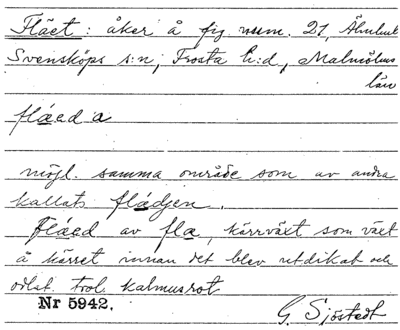 Fläet: åker å fig. num. 21, Älmhult
Svensköps s:n, Frosta h:d, Malmöhus
län
flæed a
möjl. samma område som av andra
kallats flædjen.
Flæed av flæ, kärrväxt som växt
å kärret innan det blev utdikat och
odlat. trol. kalmusrot
Nr 5942.
G. Sjöstedt